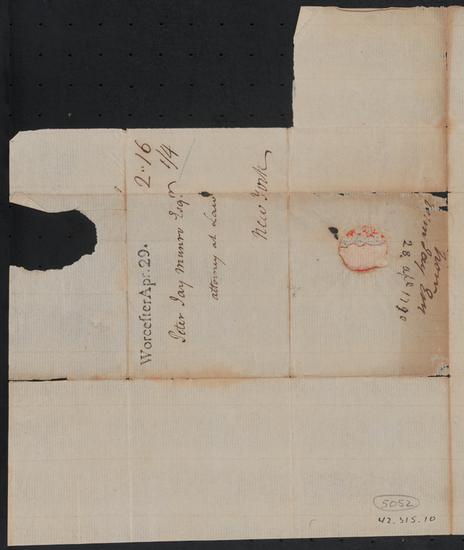 2" 16
1/4
Worcester Apr: 29.
Peter Jay Munro Esqr.
attorney at Law
New York
From
Jay Esq
28 apl 1790
5052
42.315.10